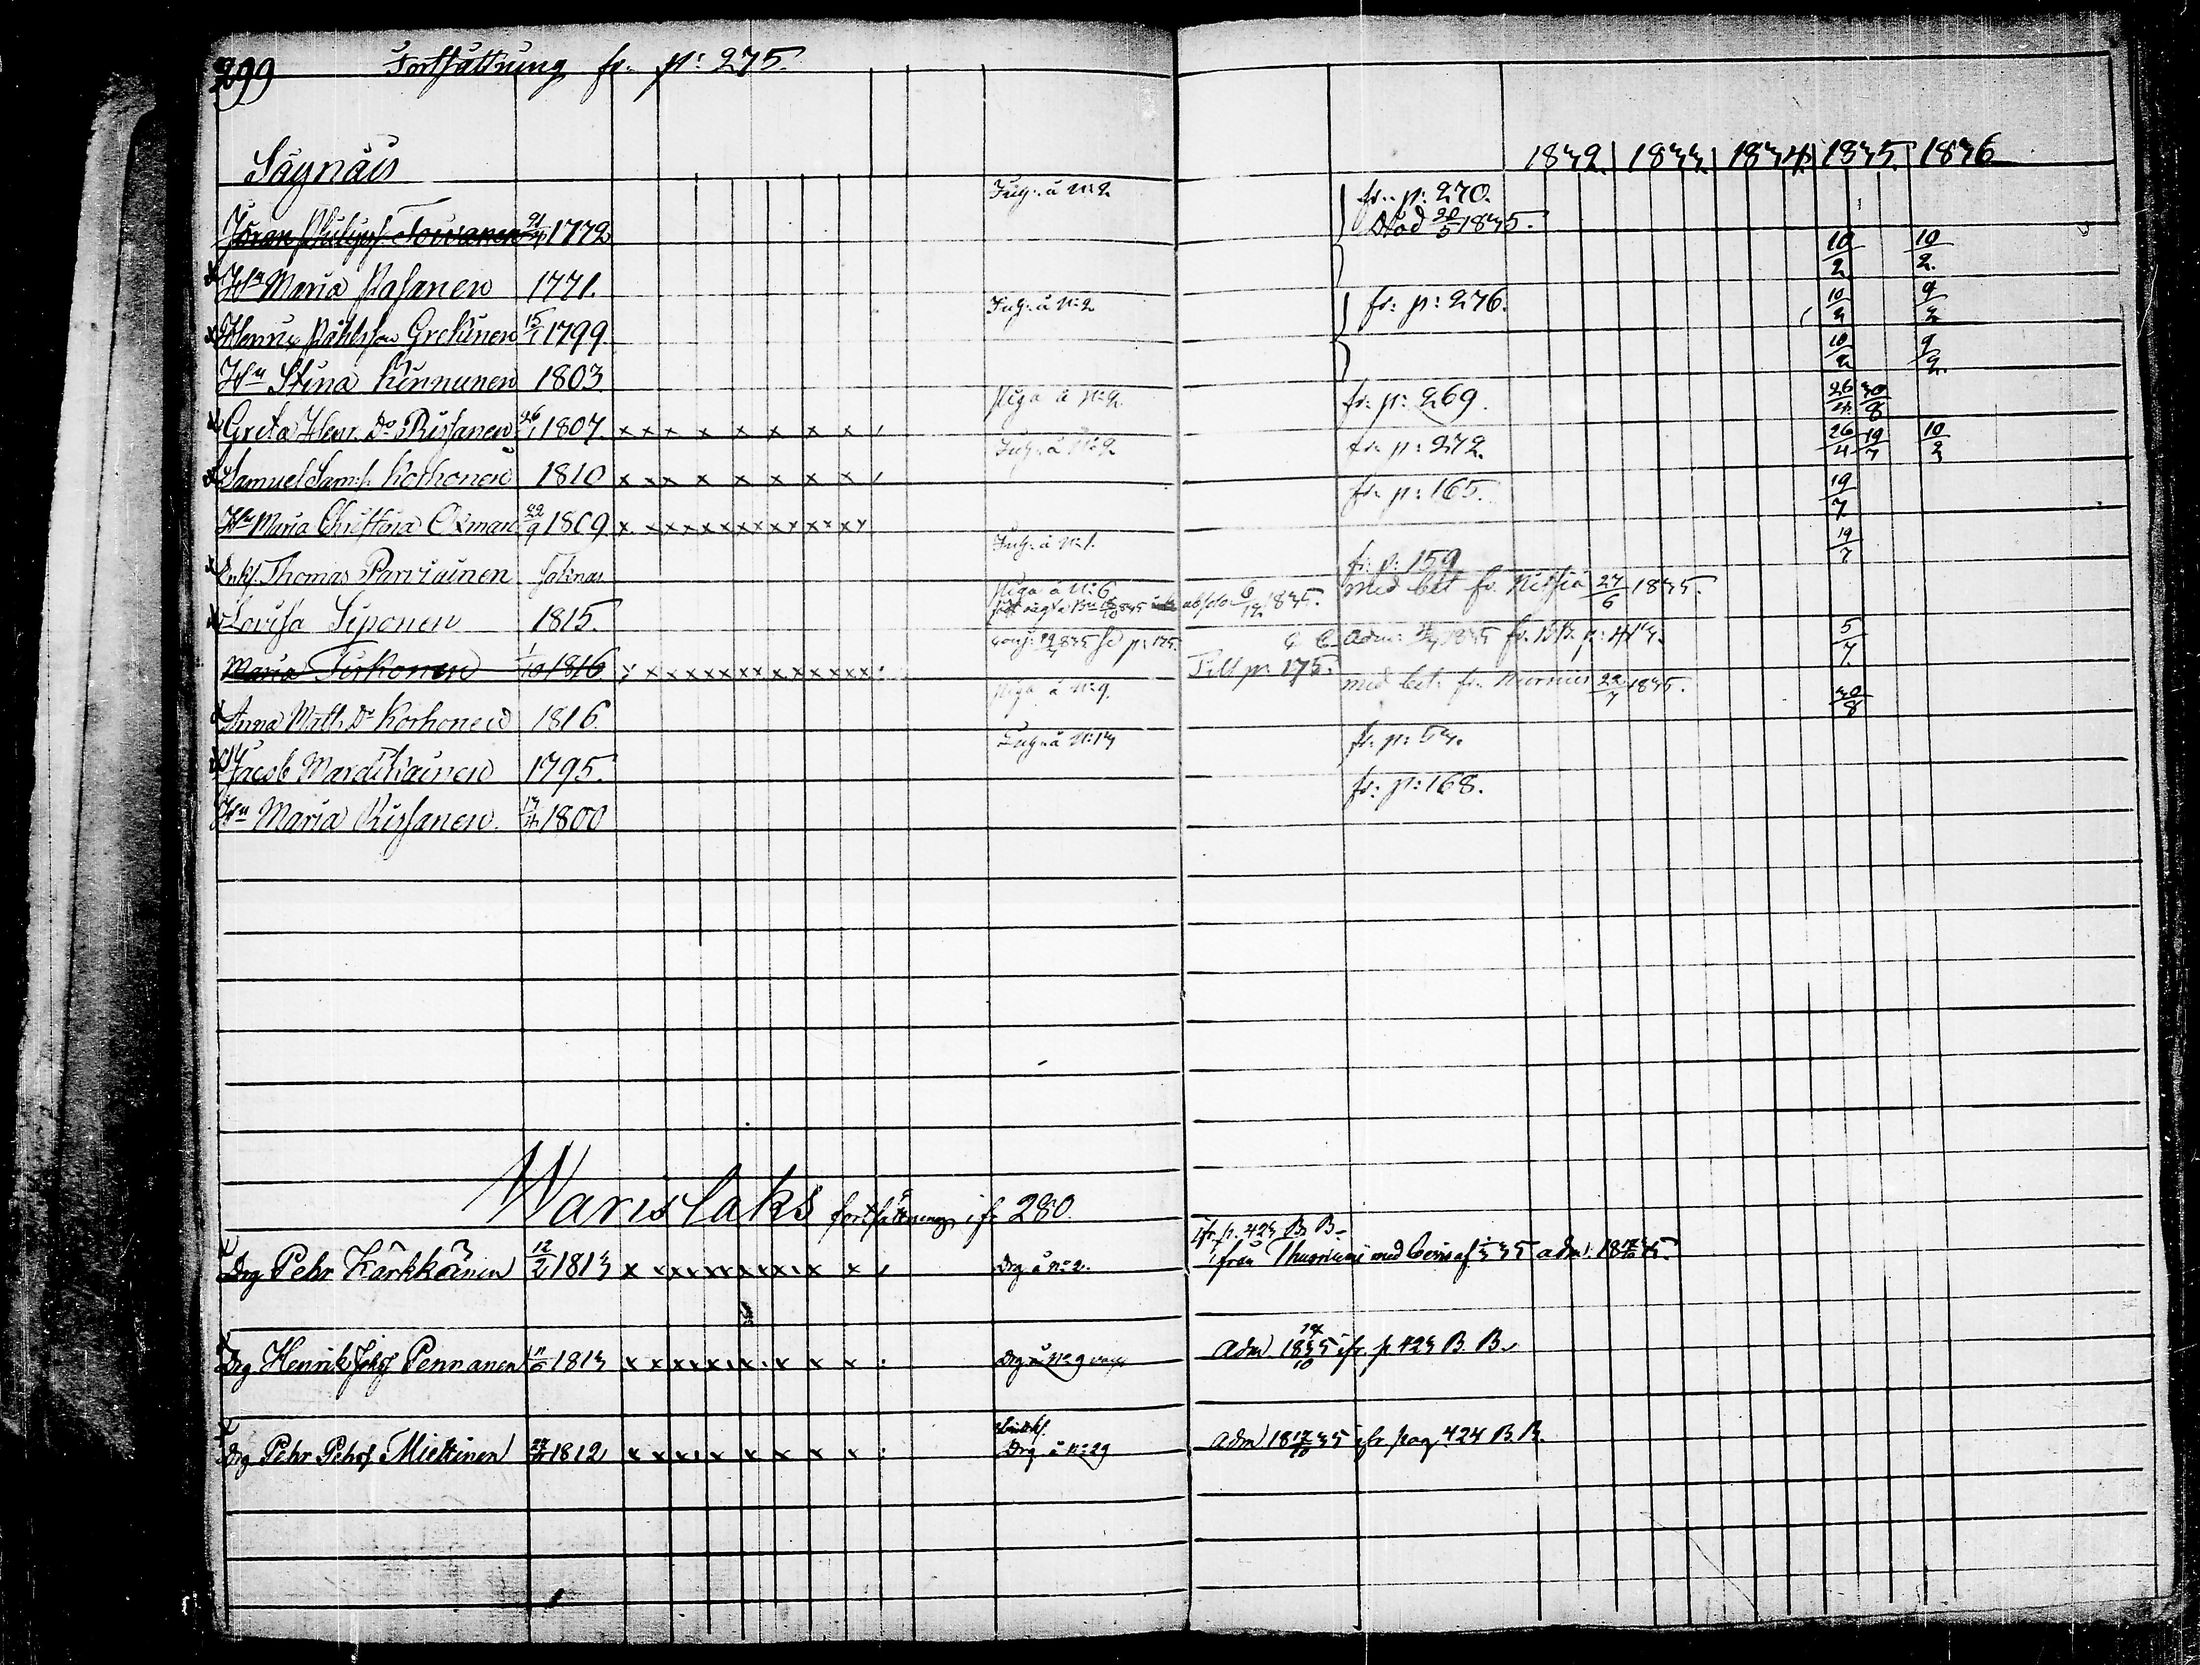 299 Fortsättning fr. p: 275.
1832. 1833 1834 1835. 1836
Säynäis
Jöran Philipss. Toivanen 21/4 1772 Inh. å N:2 fr. p: 270. Död 20/5 1835.
Hu Maria Pasanen 1771. 10/2 10/2.
Henric Påhlsson Grekinen 15/1 1799 Inh. å N:2 fr. p: 276. 10/2 9/2
Hu Stina Kinnunen 1803 10/2 9/2
Greta Henr. Dr Rissanen 26/1 1807. x x x x x x x x Piga å N:2 fr. p: 269. 26/4 30/8
Samuel Sam:s. Korhonen 1810 x x x x x x x x Inh. å N:2 fr. p: 272. 26/4 19/7 10/2
Hu Maria Christina Oxman 22/9 1809 x x x x x x x x x x x x x fr. p: 165. 19/7
Enkl. Thomas Parviainen Inh. å N:1. fr. p: 159 19/7
Lovisa Siponen 1815. Piga å N:6 absolv. 6/12 1835. med bet fr. Nilsiä 27/6 1835.
Maria Turkonen 1/10 1816 x x x x x x x x x x x x x p: 175. Till p: 175. fr. B.B. p: 413. 5/7
Anna Matts. Dr Korhonen 1816. Piga å N:9. med bet. fr. 22/7 1835. 30/8
Jacob Wardikainen 1795. Inh. å N:13 fr. p: 53.
Hu Maria Rissanen. 1800 fr: p: 168.
Warislaks fortsättning ifr 280.
Drg Pehr Kärkkäinen 12/2 1813 x x x x x x x x x x x Drg å N:2. ifr. p. 423 B. B. från Thusniemi med bevis af
Drg Henrik Johss Pennanen 1813 x x x x x x x x x Drg å N:9 adm. 14/10 1835 ifr. p 423 B. B.
Drg Pehr Pehrss Miettinen 1812 x x x x x x x x Drg å N:29 adm 18 17/10 35 ifr pag 424 B. B.